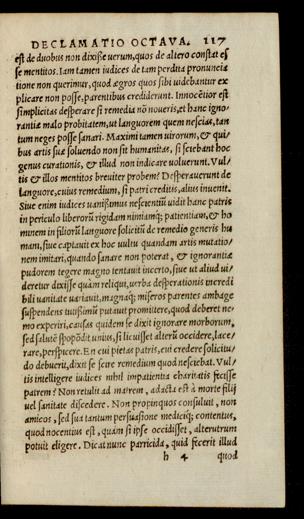 DECLAMATIO OCTAVA. 117
est de duobus non dixisse uerum, quos de altero constat es
se mentitos. Iam tamen iudices de tam perdita pronuncia
tione non querimur, quod ægros quos sibi uidebantur ex
plicare non posse, parentibus crediderunt. Innocētior est
simplicitas desperare si remedia nō noueris, et hanc igno-
rantiæ malo probitatem, ut languorem quem nescias, tan
tum neges posse sanari. Maximi tamen uirorum, & qui-
bus artis suæ soluendo non sit humanitas, si sciebant hoc
genus curationis, & illud non indicare uoluerunt. Vul-
tis & illos mentitos breuiter probem? Desperauerunt de
languore, cuius remedium, si patri creditis, alius inuenit.
Siue enim iudices uanissimus nescientiū uidit hanc patris
in periculo liberorū rigidam nimiamq; patientiam, & ho
minem in filiorū languore solicitū de remedio generis hu
mani, siue captauit ex hoc uultu quandam artis mutatio/
nem imitari, quando sanare non poterat, & ignorantiæ
pudorem tegere magno tentauit incerto, siue ut aliud ui/
deretur dixisse quàm reliqui, uerba desperationis incredi
bili uanitate uariauit, magnaq; miseros parentes ambage
suspendens tutissimū putauit promittere, quod deberet ne-
mo experiri, causas quidem se dixit ignorare morborum,
sed salutē spopōdit unius, si licuisset alterū occidere, lace/
rare, perspicere. En cui pietas patris, cui credere solicitu-
do debuerit, dixit se scire remedium quod nesciebat. Vul-
tis intelligere iudices nihil impatientia charitatis fecisse
patrem? Non retulit ad matrem, adacta est à morte filij
uel sanitate discedere. Non propinquos consuluit, non
amicos, sed sua tantum persuasione mediciq; contentus,
quod nocentius est, quàm si ipse occidisset, alterutrum
potuit eligere. Dicat nunc parricida, quid fecerit illud
h 4 quod